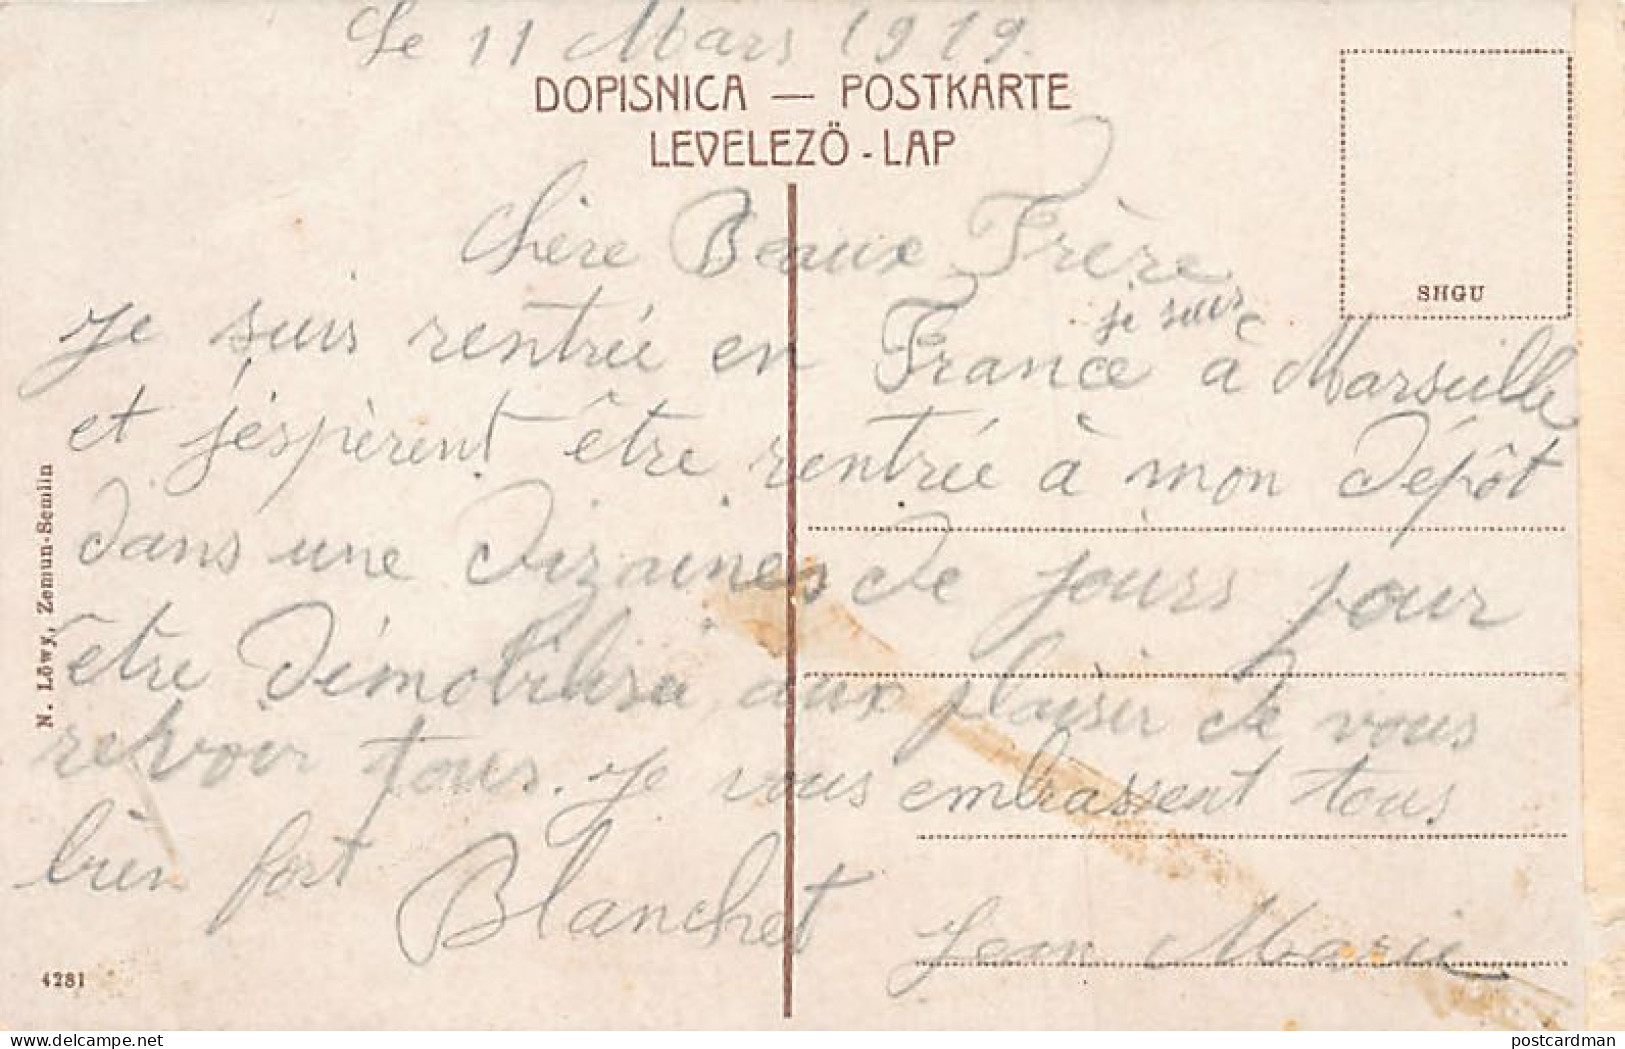 Le 11 Mars 1919.
DOPISNICA — POSTKARTE
LEVELEZÖ - LAP
SHGU
Chère Beaux Frère
je suis
Je suis rentrée en France à Marseille
et j'éspèrent être rentrée à mon Dépôt
dans une Dizaines de jours pour
être Démobilisé aux plaisir de vous
revoir tous. Je vous embrassent tous
bien fort Blanchet Jean Marie
N. Löwy, Zemun-Semlin
4281
delcampe.net
postcardman